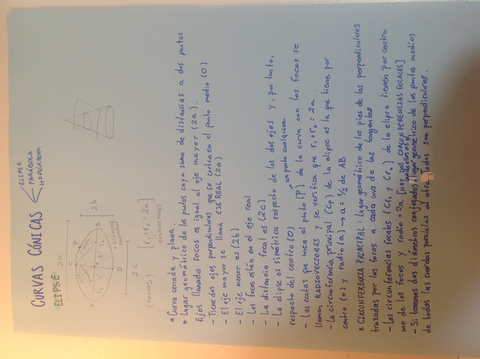 CURVAS CÓNICAS
ELIPSE
PARÁBOLA
HIPÉRBOLA
ELIPSE
2a
2b
2c
[r₁+r₂=2a]
(focos)
* Curva cerrada y plana.
* Lugar geométrico de los puntos cuya suma de distancias a dos puntos
fijos (llamados focos) es igual al eje mayor (2a).
- Tiene dos ejes perpendiculares que se cortan en el punto medio (O)
- El eje mayor se llama EJE REAL (2a)
- El eje menor es (2b)
- Los focos están en el eje real
- La distancia focal es (2c)
- La elipse es simétrica respecto de los dos ejes y, por tanto,
respecto del centro (O)
un punto cualquiera
- Las rectas que unen el punto (P) de la curva con los focos se
llaman RADIOVECTORES y se verifica que r₁+r₂=2a.
- La circunferencia principal (Cp) de la elipse es la que tiene por
centro (O) y radio (a) → a = 1/2 de AB
* CIRCUNFERENCIA PRINCIPAL: lugar geométrico de los pies de las perpendiculares
trazadas por los focos a cada una de las tangentes
- Las circunferencias focales (CF₁ y CF₂) de la elipse tienen por centro
uno de los focos y radio = 2a [HAY DOS CIRCUNFERENCIAS FOCALES]
- Si tenemos dos diámetros conjugados, lugar geométrico de los puntos medios
de todas las cuerdas paralelas al otro, ellos son perpendiculares.